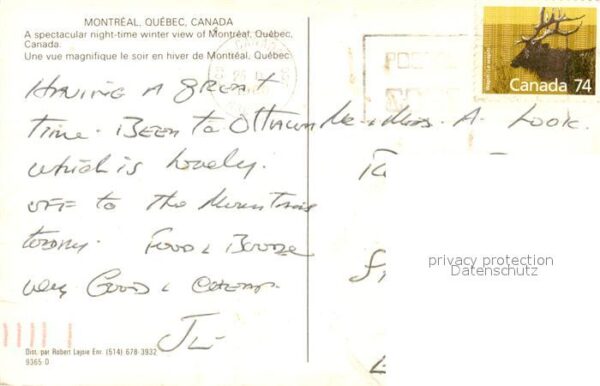 MONTRÉAL, QUÉBEC, CANADA
A spectacular night-time winter view of Montréal, Québec,
Canada.
Une vue magnifique le soir en hiver de Montréal, Québec
Canada 74
HAVING A GREAT
TIME. BEEN to OTTAWA
which is lovely.
OFF TO the Mountains
today. FOOD & BOOZE
very GOOD & CHEAP.
Mr & Mrs. A. Look.
privacy protection
Datenschutz
Dist. par Robert Lajoie Enr. (514) 678-3932
9365 D